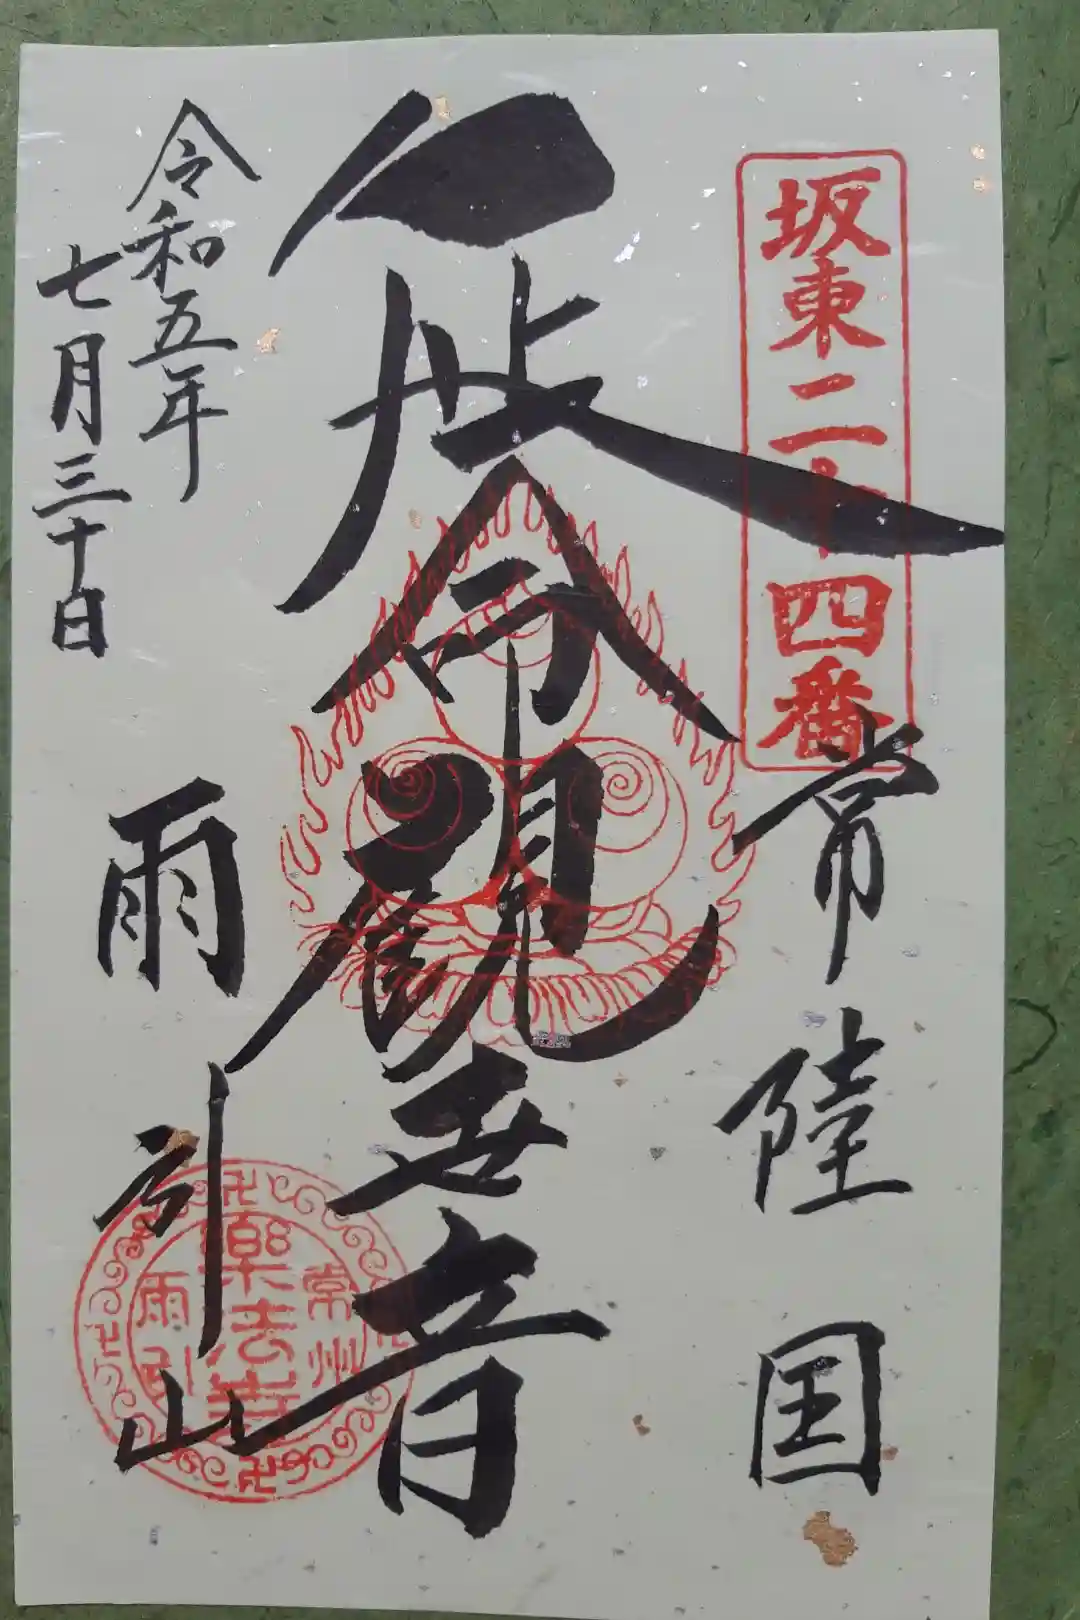 坂東二十四番
常陸国
延命観世音
雨引山
令和五年
七月三十日
常州
樂法寺
雨引